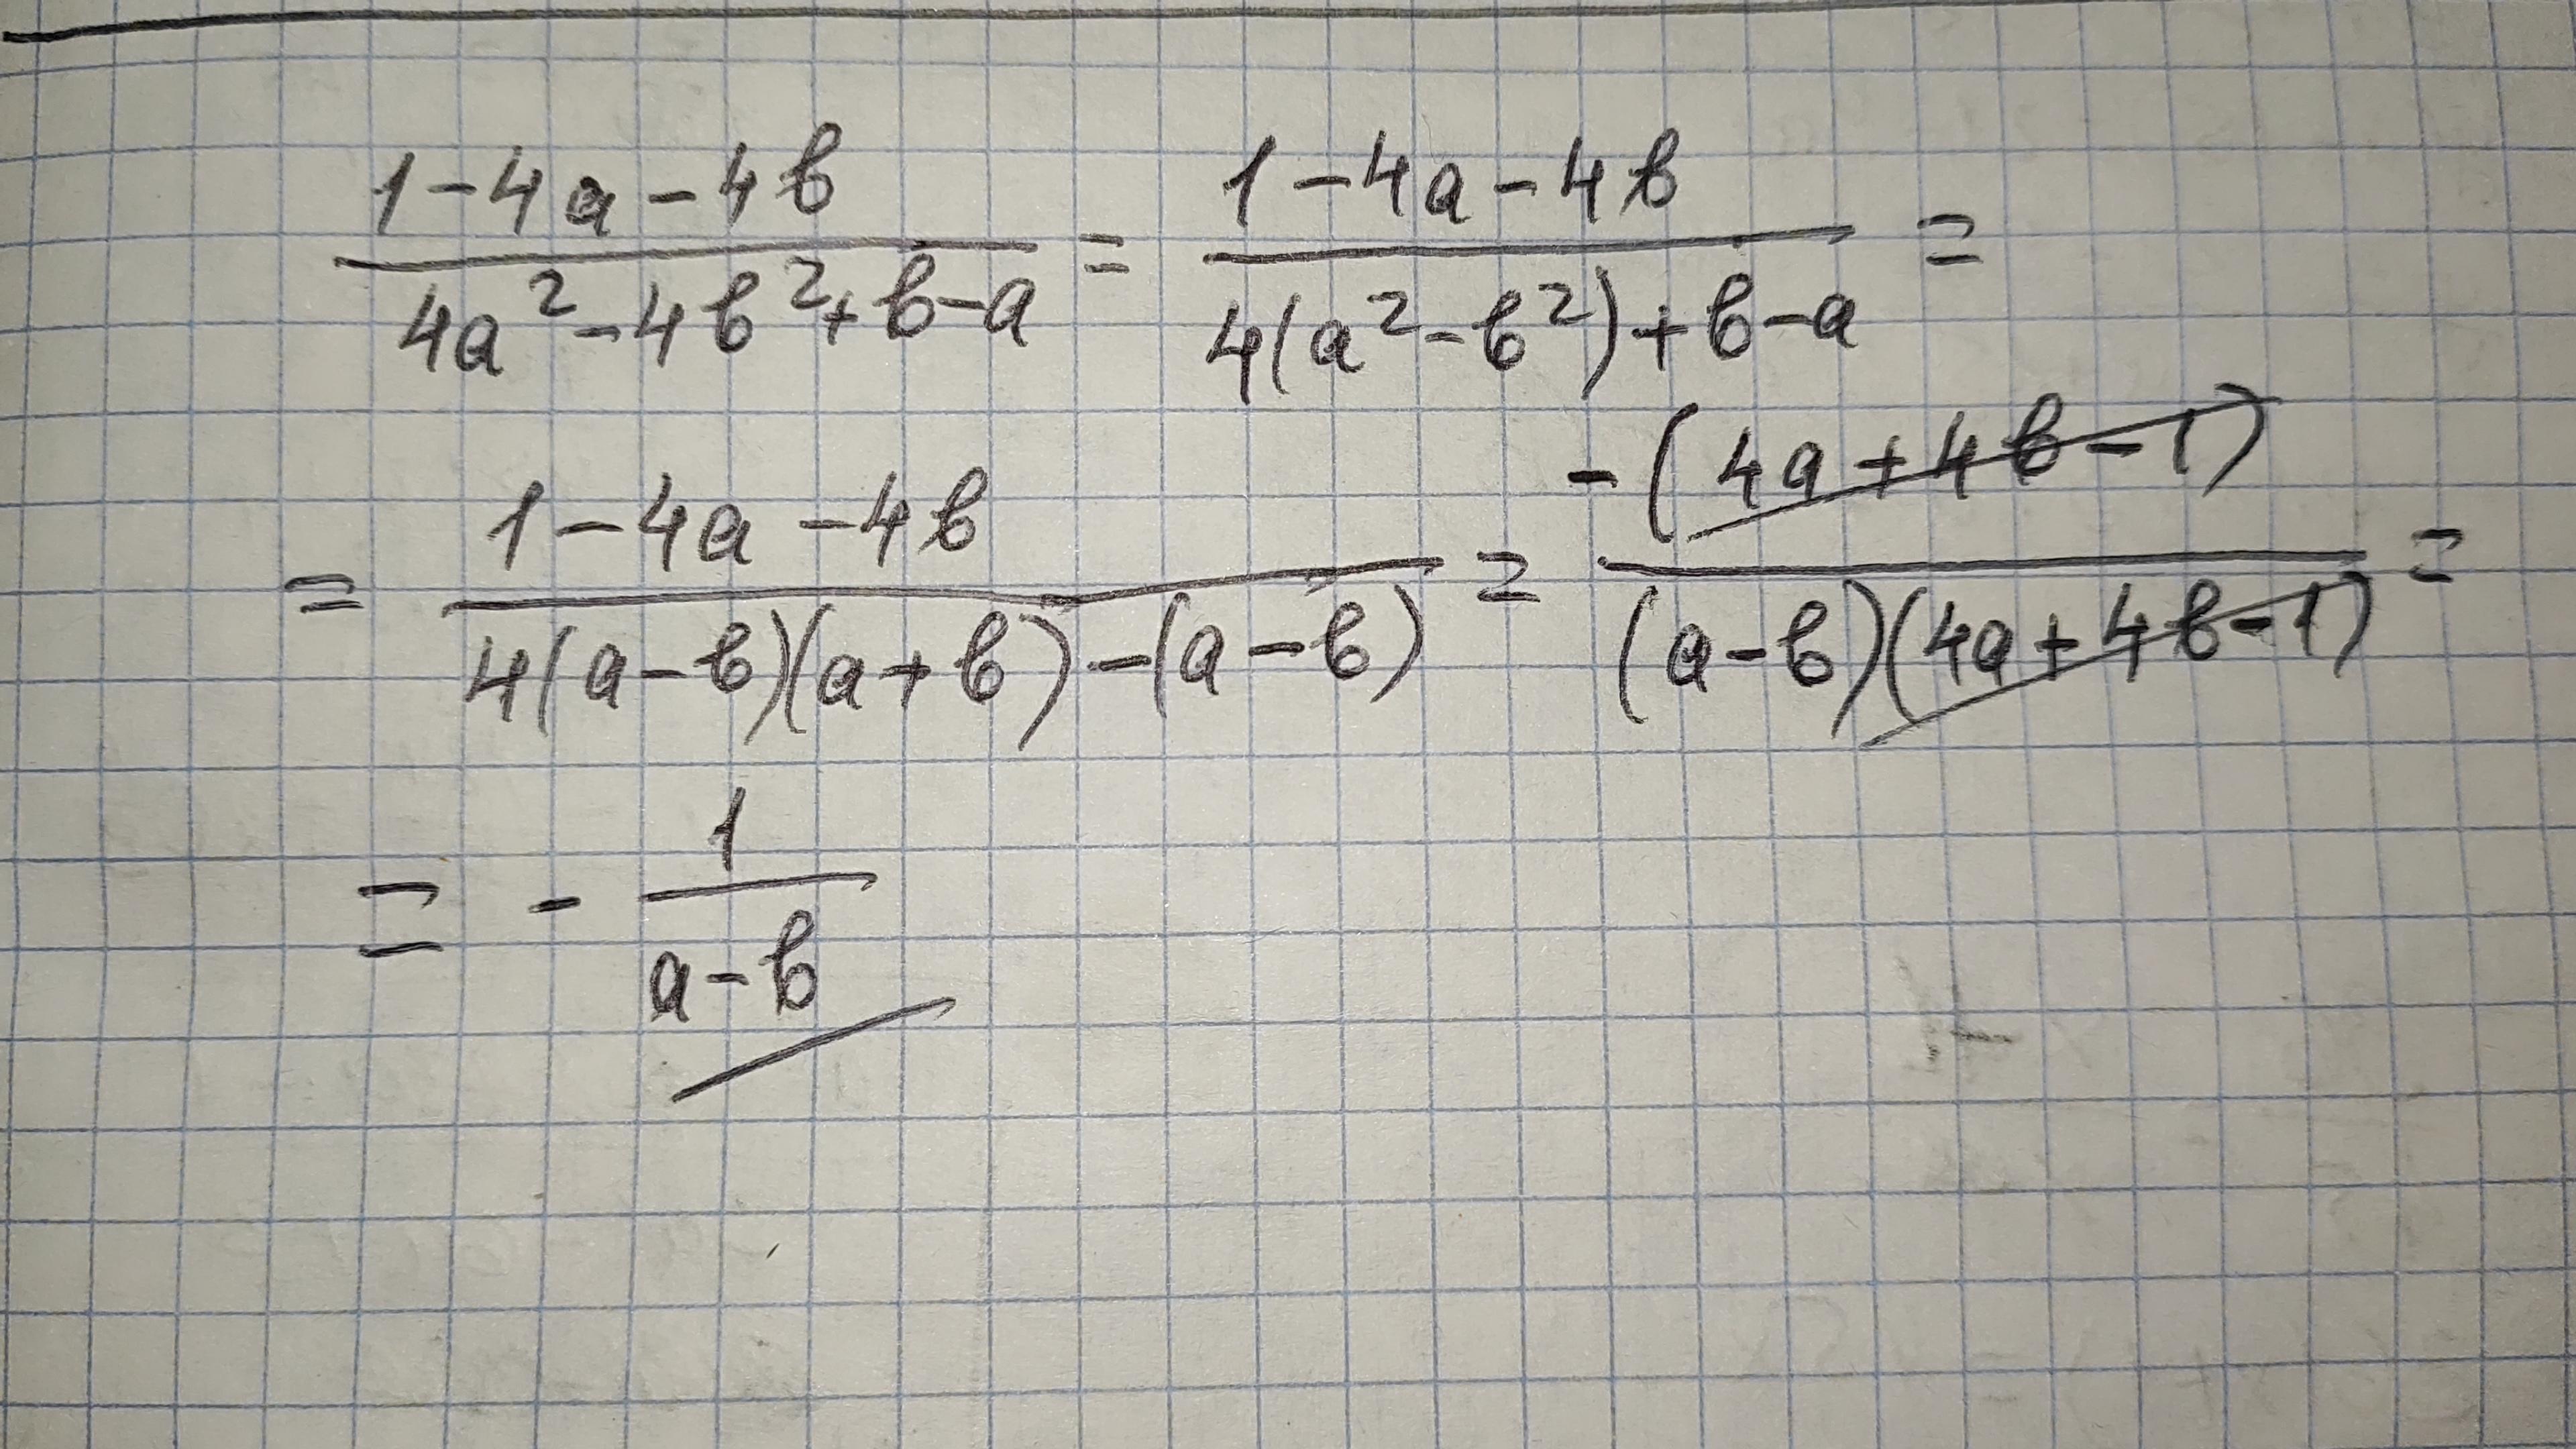 (1-4a-4b)/(4a²-4b²+b-a) = (1-4a-4b)/(4(a²-b²)+b-a) =
= (1-4a-4b)/(4(a-b)(a+b)-(a-b)) = -(4a+4b-1)/((a-b)(4a+4b-1)) =
= - 1/(a-b)